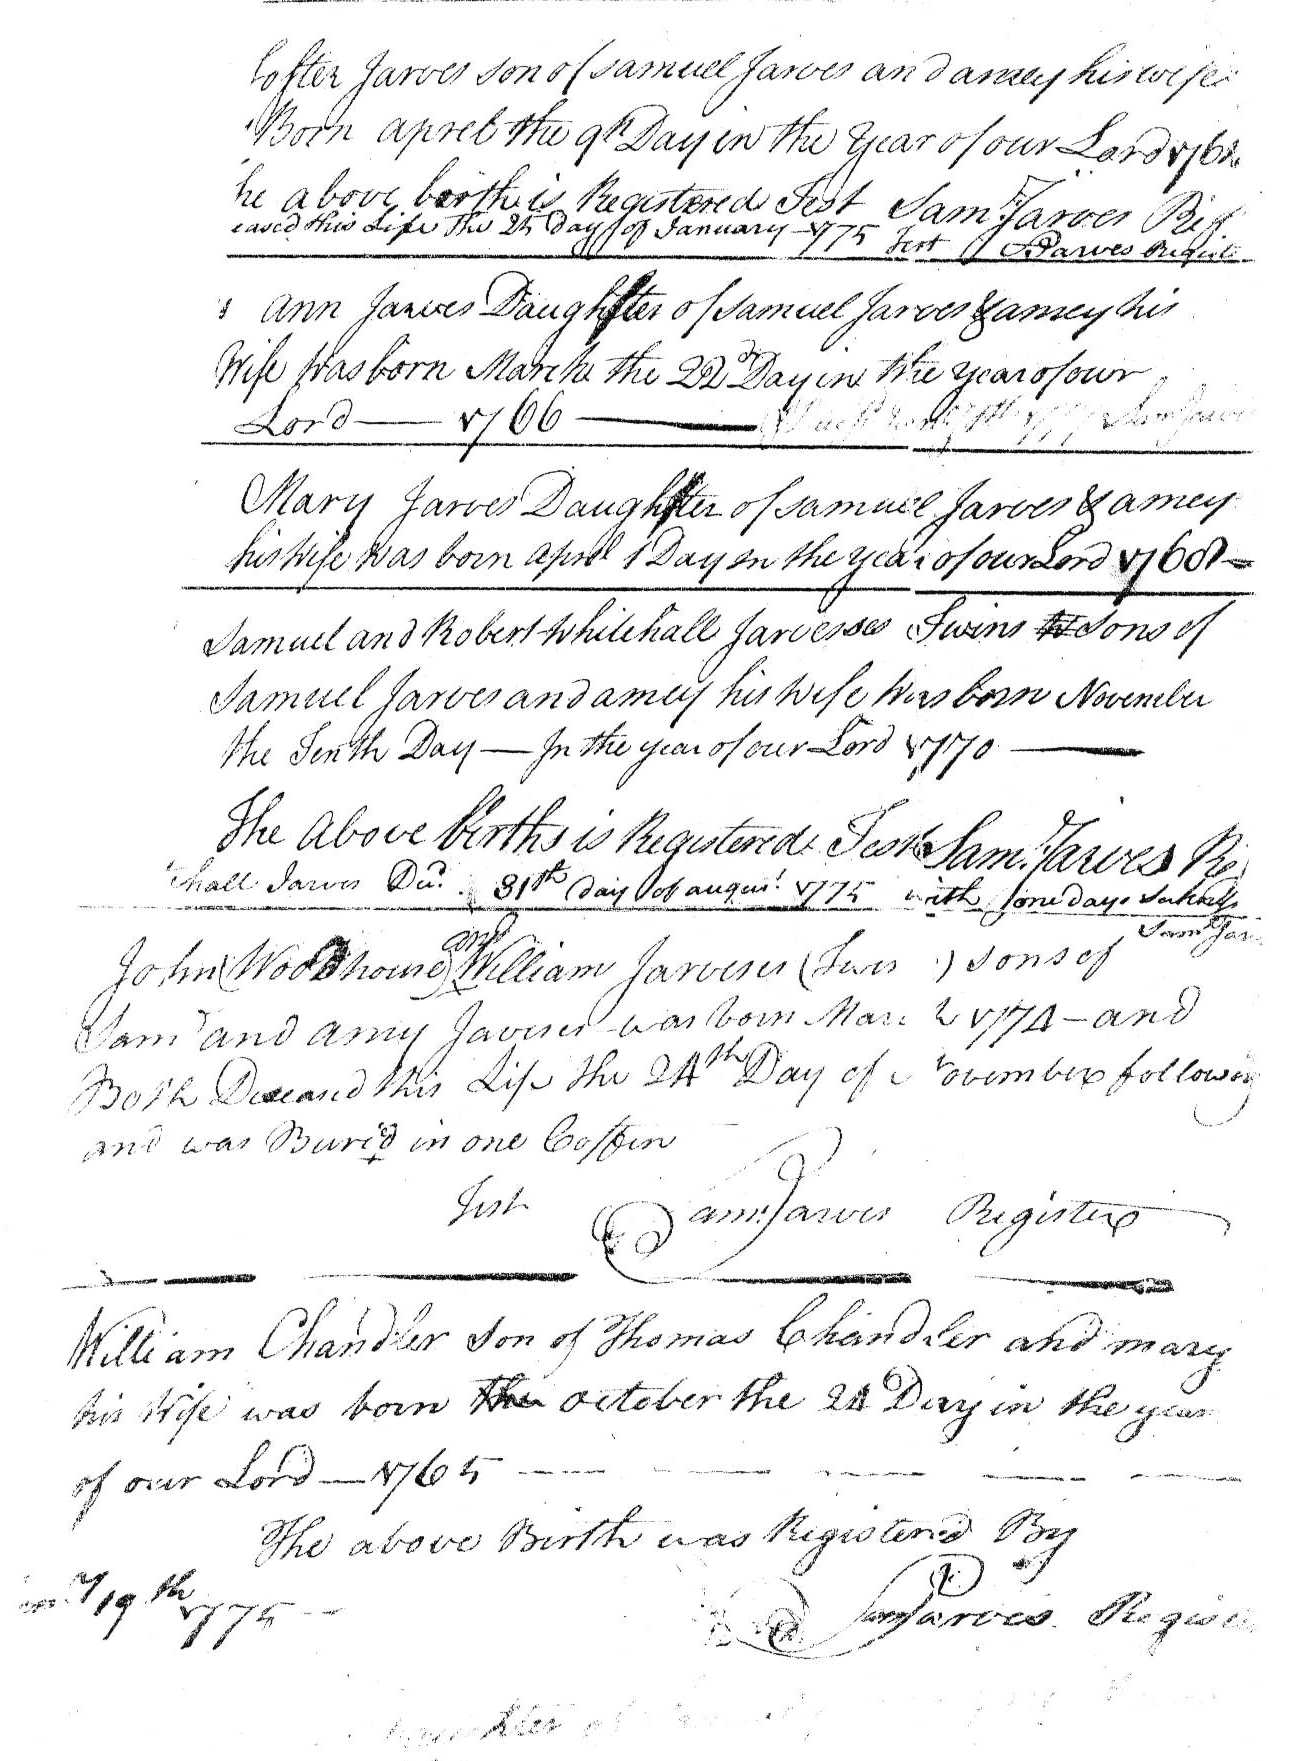 Foster Jarves son of Samuel Jarves and amey his wife
Born aprel the 9th Day in the Year of our Lord 1762
he above birth is Registered Test Saml Jarves Reg
eased this Life the 25 day of January 1775 Test S Jarves Regist
Ann Jarves Daughter of Samuel Jarves & amey his
Wife Was born March the 22d Day in the year of our
Lord — 1766 — Saml Jarves
Mary Jarves Daughter of Samuel Jarves & amey
his Wife Was born april 1 Day in the year of our Lord 1768 —
Samuel and Robert Whitehall Jarvesses Twins Sons of
Samuel Jarves and amey his Wife Was born November
the Tenth Day — In the year of our Lord 1770 —
The Above births is Registered Test Saml Jarves Re
hall Jarves 31th day of augus 1775 with
Saml Jar
John (Woodhouse) and William Jarveses (Twi ) sons of
Saml and amy Jarveses was born Marc 1774 — and
Both Deceased this Life the 24th Day of November following
and was Buried in one Coffin
Test Saml Jarves Register
William Chandler Son of Thomas Chandler and mary
his Wife was born october the 24 Day in the year
of our Lord — 1765 — — — — —
The above Birth was Registered By
19th 1775 — Saml Jarves Regist